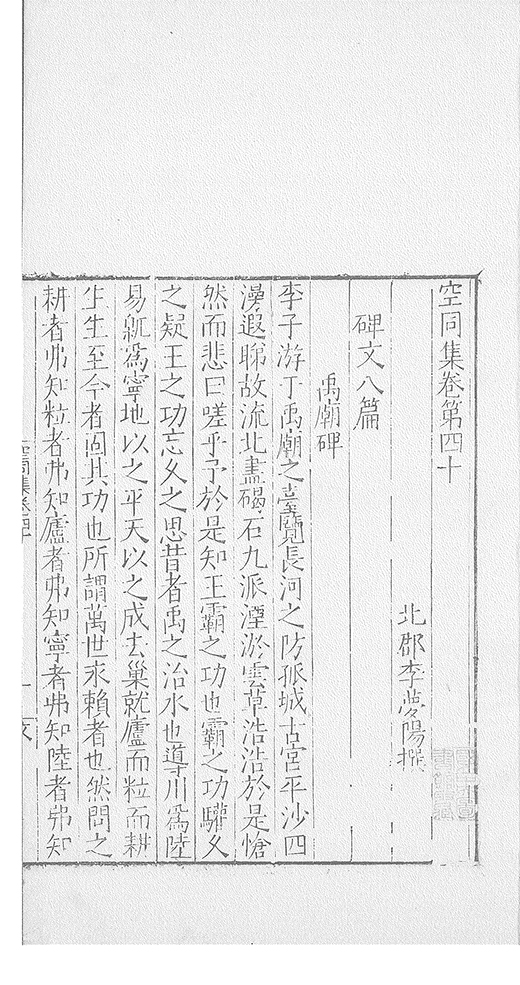 空同集卷第四十
北郡李夢陽撰
碑文八篇
禹廟碑
李子游于禹廟之臺覽長河之防孤城古宮平沙四
漫遐睇故流北盡碣石九派湮淤雲草浩浩於是愴
然而悲曰嗟乎予於是知王霸之功也霸之功驩久
之疑王之功忘久之思昔者禹之治水也導川爲陸
易𩀌爲寧地以之平天以之成去巢就廬而粒而耕
生生至今者固其功也所謂萬世永賴者也然問之
耕者弗知粒者弗知廬者弗知寧者弗知陸者弗知